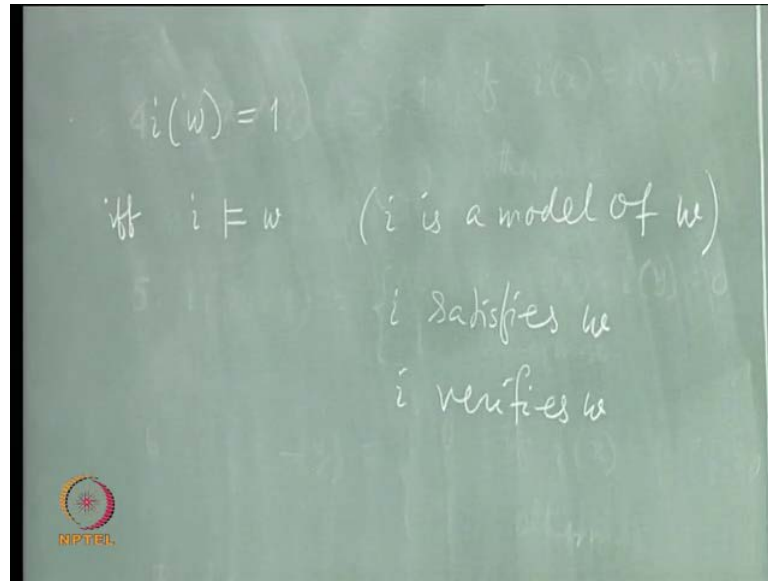 i(w) = 1
iff i ⊨ w (i is a model of w)
i satisfies w
i verifies w
NPTEL